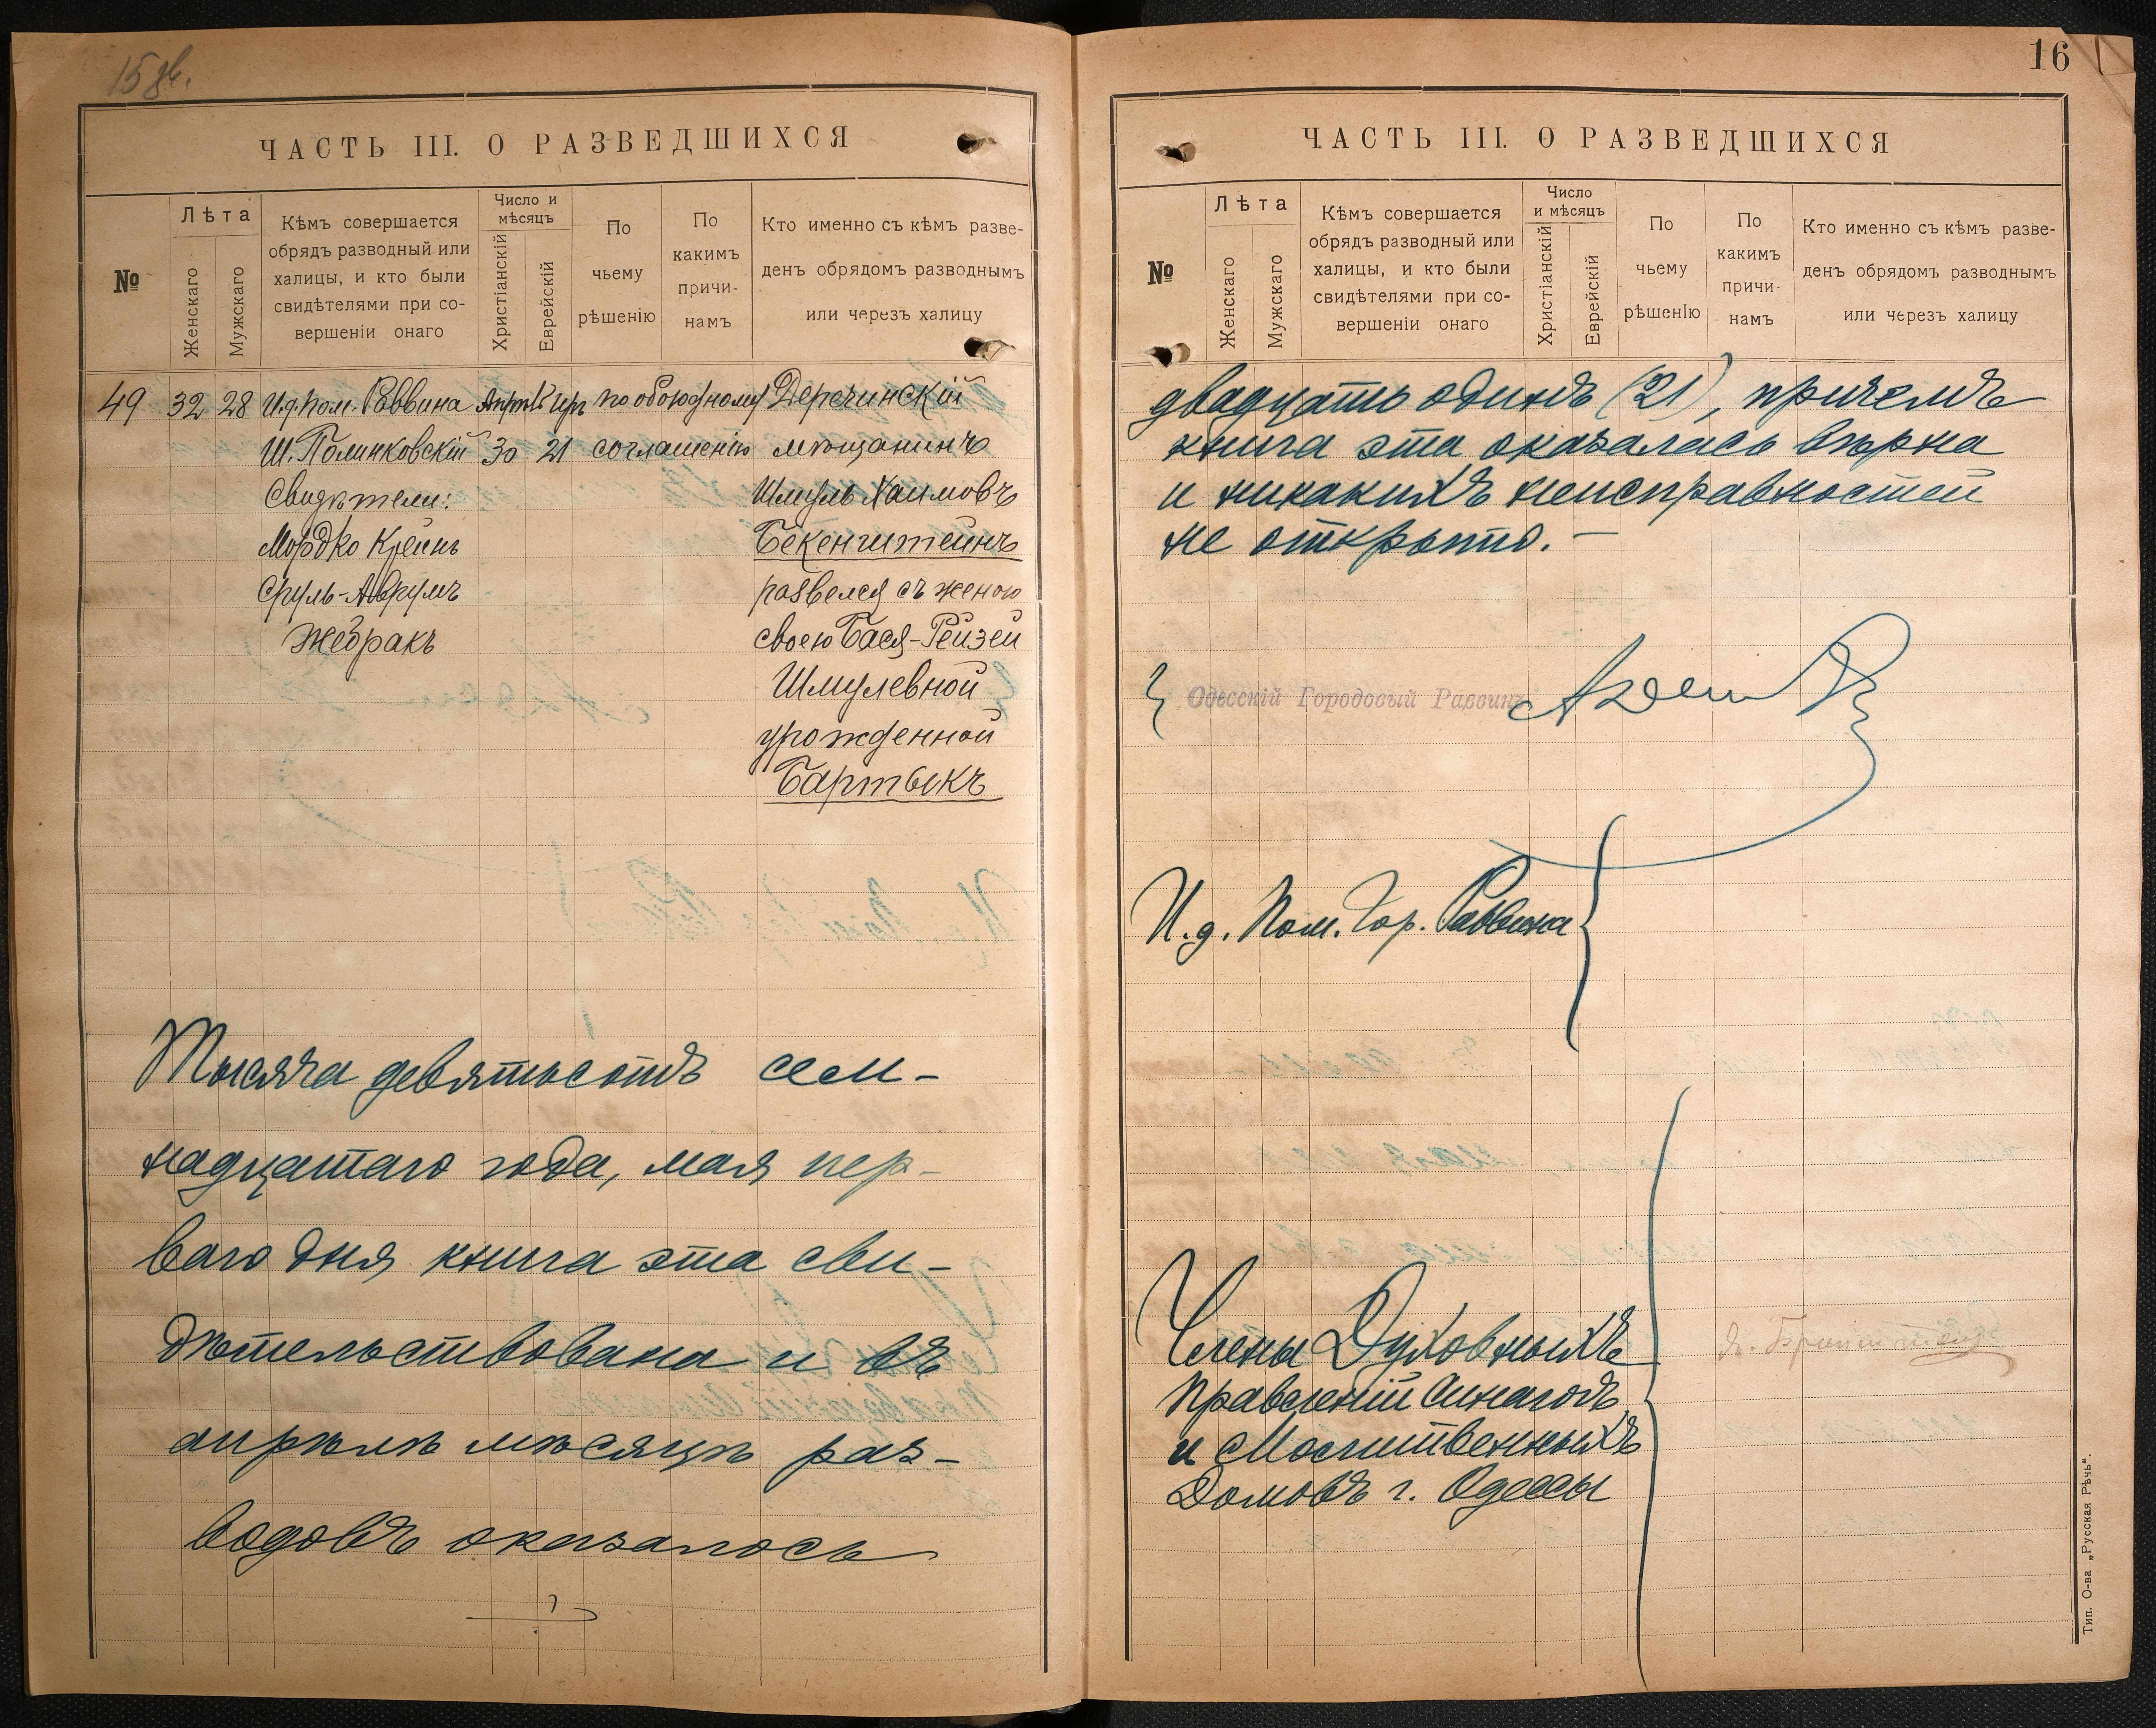 15 об.
ЧАСТЬ III. О РАЗВЕДШИХСЯ
№
Лѣта
Женскаго
Мужскаго
Кѣмъ совершается
обрядъ разводный или
халицы, и кто были
свидѣтелями при со-
вершеніи онаго
Число и
мѣсяцъ
Христіанскій
Еврейскій
По
чьему
рѣшенію
По
какимъ
причи-
намъ
Кто именно съ кѣмъ разве-
денъ обрядомъ разводнымъ
или черезъ халицу
49 32 28 И.д. Пом. Раввина Апрѣль Іяръ по обоюдному Деречинскій
Ш. Полинковскій 30 21 соглашенію мѣщанинъ
Свидѣтели: Шмуль Хаимовъ
Мордко Крейнъ Бекенштейнъ
Сруль-Аврумъ развелся съ женою
Жебракъ своею Бася-Рейзей
Шмулевной
урожденной
Бартыкъ
Тысяча девятьсотъ сем-
надцатаго года, мая пер-
ваго дня книга эта сви-
дѣтельствована и въ
апрѣлѣ мѣсяцѣ раз-
водовъ оказалось
16
ЧАСТЬ III. О РАЗВЕДШИХСЯ
№
Лѣта
Женскаго
Мужскаго
Кѣмъ совершается
обрядъ разводный или
халицы, и кто были
свидѣтелями при со-
вершеніи онаго
Число
и мѣсяцъ
Христіанскій
Еврейскій
По
чьему
рѣшенію
По
какимъ
причи-
намъ
Кто именно съ кѣмъ разве-
денъ обрядомъ разводнымъ
или черезъ халицу
двадцать одинъ (21), причемъ
книга эта оказалась вѣрна
и никакихъ неисправностей
не открыто.—
Одесскій Городовый Раввинъ
И.д. Пом. Гор. Раввина
Члены Духовныхъ
Правленій Синагогъ
и Молитвенныхъ
Домовъ г. Одессы
Тип. О-ва „Русская Рѣчь“.